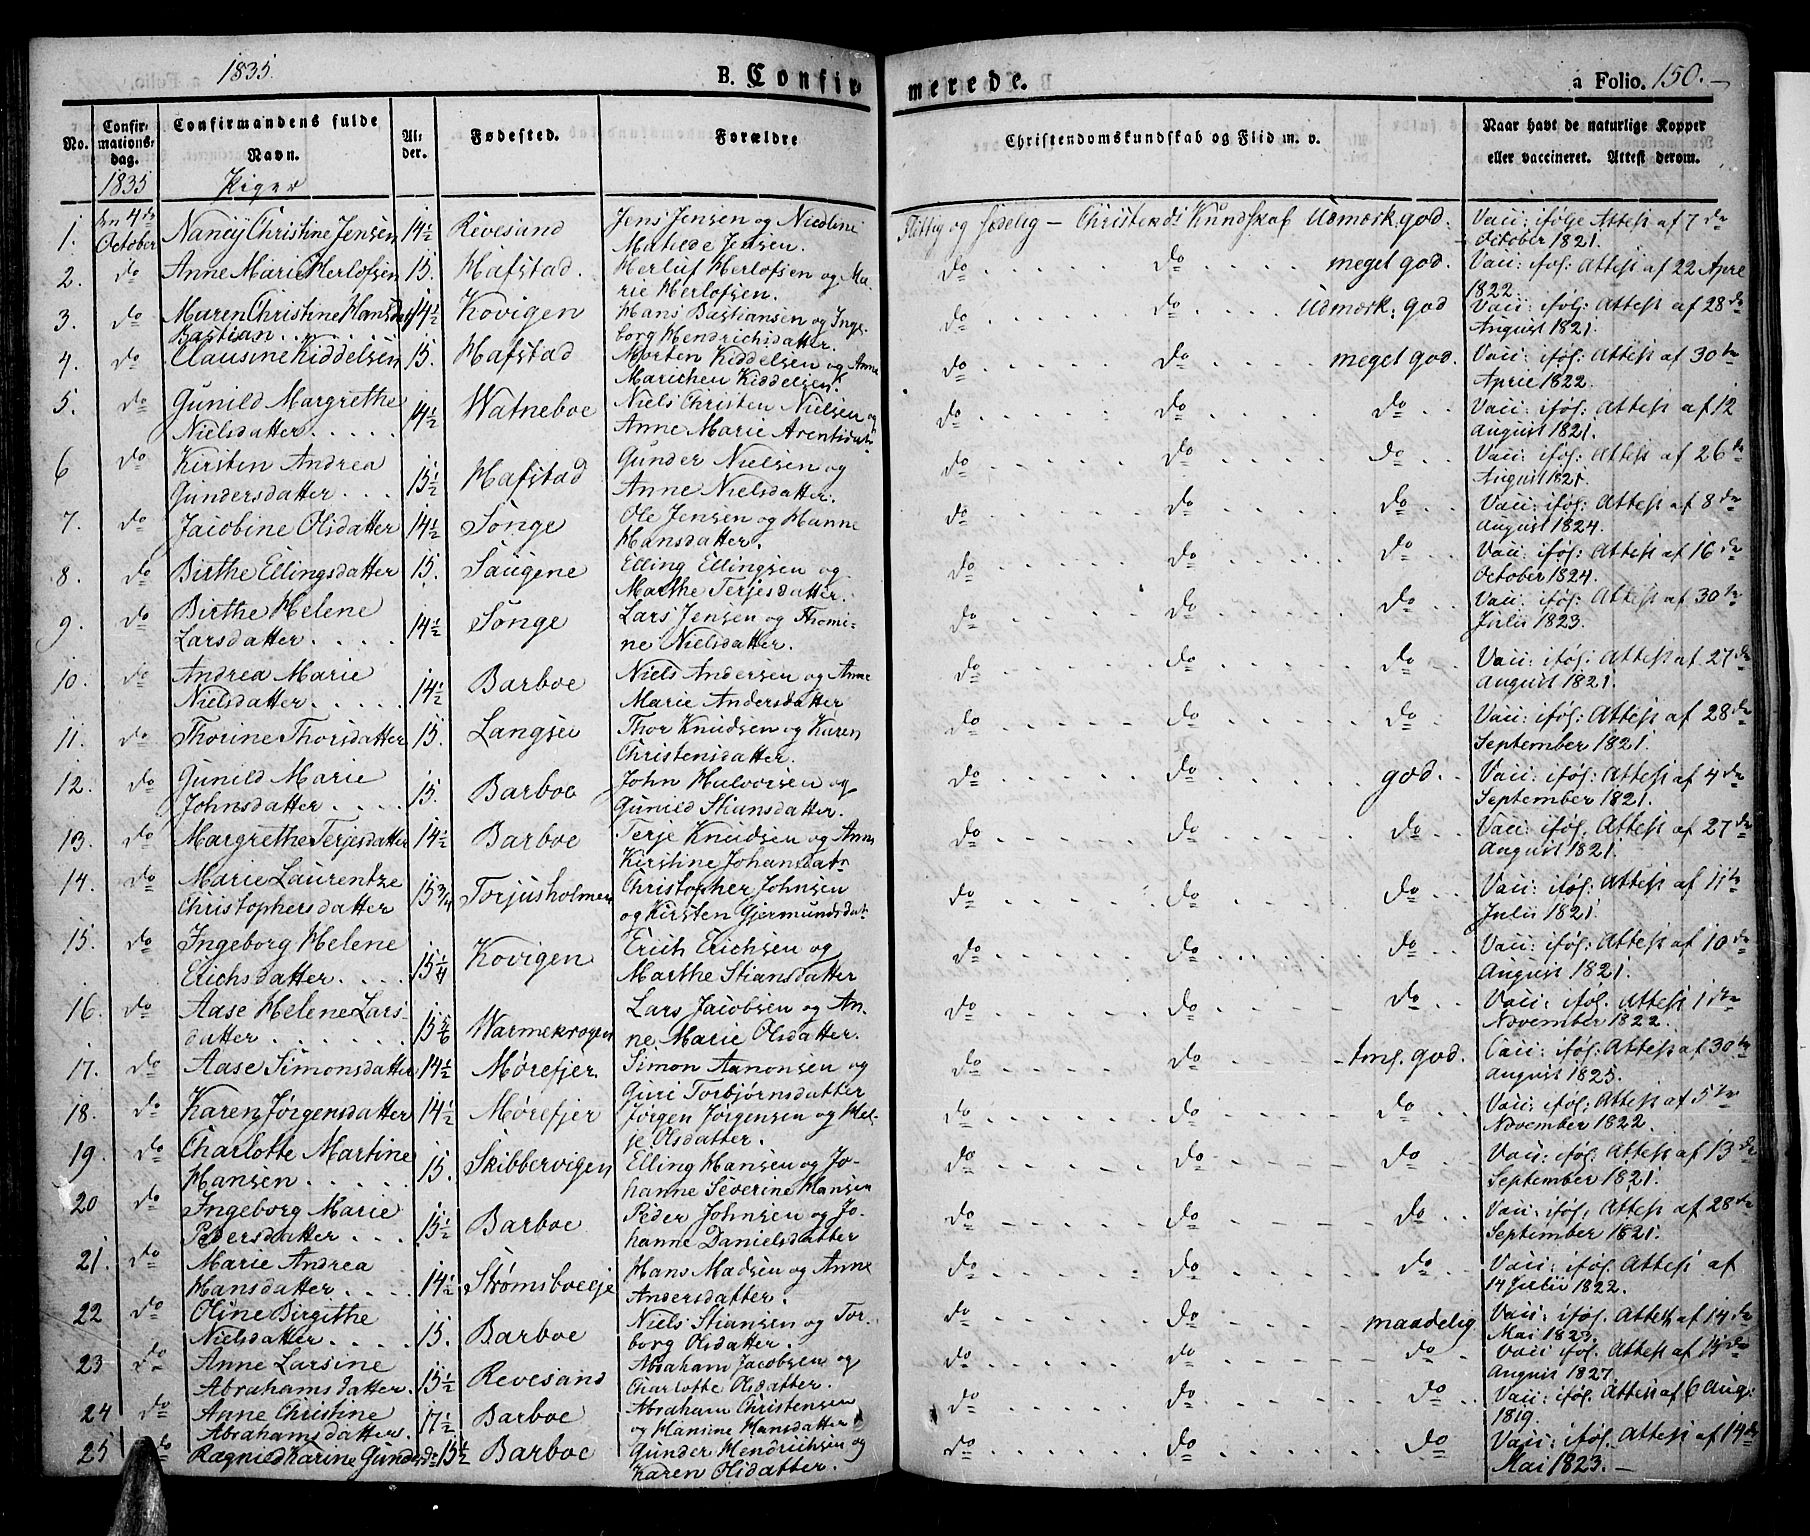 1835.
B. Confirmerede.
a Folio. 150.
No. Confirmationsdag. Confirmandens fulde Navn. Alder. Fødested. Forældre Christendomskundskab og Flid m. v. Naar havt de naturlige Kopper eller vaccineret. Attest derom.
1835 Piger
1. den 4de October Nancy Christine Jensen 14½ Revesand Jens Jensen og Nicoline Matilde Jensen. Flittig og Sædelig – Christendi Kundskab Udmærk: god. Vacc: ifølge Attest af 7de October 1821.
2. do Anne Marie Herlofsen 15. Hafstad. Herluf Herlofsen og Marie Herlofsen. do do meget god. Vacc: iføl: Attest af 22 April 1822.
3. do Maren Christine Hansdatr Bastian 14½ Kovigen Hans Bastiansen og Ingeborg Hendrichsdatter. do do Udmærk: god Vacc: iføl: Attest af 28de August 1821.
4. do Clausine Kiddelsen 15. Hafstad Morten Kiddelsen og Anne Marichen Kiddelsen. do do meget god. Vacc: iføl: Attest af 30te April 1822.
5. do Gunild Margrethe Nielsdatter 14½ Watneboe Niels Christen Nielsen og Anne Marie Arentsdatr do do do Vacc: iføl: Attest af 12 August 1821.
6 do Kirsten Andrea Gundersdatter 15½ Hafstad Gunder Nielsen og Anne Nielsdatter. do do do Vacc: iføl: Attest af 26de August 1821.
7. do Jacobine Olsdatter 14½ Songe Ole Jensen og Hanne Hansdatter. do do do Vacc: iføl: Attest af 8de August 1824.
8. do Birthe Ellingsdatter 15. Saugene Elling Ellingsen og Marthe Terjesdatter. do do do Vacc: iføl: Attest af 16de October 1824.
9. do Birthe Helene Larsdatter 14½ Songe Lars Jensen og Thomine Nielsdatter. do do do Vacc: iføl: Attest af 30te Julii 1823.
10. do Andrea Marie Nielsdatter 14½ Barboe Niels Andersen og Anne Marie Andersdatter do do do Vacc: iføl: Attest af 27de August 1821.
11. do Thorine Thorsdatter 15. Langsæ Thor Knudsen og Karen Christensdatter. do do do Vacc: iføl: Attest af 28de September 1821.
12. do Gunild Marie Johnsdatter 15. Barboe John Halvorsen og Gunild Stiansdatter. do do god. Vacc: iføl: Attest af 4de September 1821.
13. do Margrethe Terjesdatter 14½ Barboe Terje Knudsen og Anne Kirstine Johansdatr do do do Vacc: iføl. Attest af 27de August 1821.
14. do Marie Laurentze Christophersdatter 15¾ Torjusholmen Christopher Johnsen og Kirsten Gjermundsdat: do do do Vacc: iføl: Attest af 11te Julii 1821.
15. do Ingeborg Helene Erichsdatter 15¼ Kovigen Erich Erichsen og Marthe Stiansdatter do do do Vacc: iføl: Attest af 10de August 1821.
16. do Aase Helene Larsdatter 15 5/6 Warmekrogen Lars Jacobsen og Anne Marie Olsdatter. do do do Vacc: iføl. Attest af 1ste November 1822.
17. do Aase Simonsdatter 14½ Mørefjer. Simon Aanonsen og Guri Torbjørnsdatter do do tml. god. Vacc: iføl: Attest af 30te August 1825.
18. do Karen Jørgensdatter 14½ Mørefjer Jørgen Jørgensen og Helje Olsdatter. do do do Vacc: iføl: Attest af 5te November 1822.
19. do Charlotte Martine Hansen 15. Skibbervigen Elling Hansen og Johanne Severine Hansen do do do Vacc: iføl: Attest af 13de September 1821.
20 do Ingeborg Marie Pedersdatter 15½ Barboe Peder Johnsen og Johanne Danielsdatter do do do Vacc: iføl. Attest af 28de September 1821.
21. do Marie Andrea Hansdatter 14½ Strømsboeeje Hans Madsen og Anne Andersdatter. do do do Vacc: iføl: Attest af 14 Julii 1822.
22 do Oline Birgithe Nielsdatter 15. Barboe Niels Stiansen og Torborg Olsdatter. do do maadelig Vacc: iføl. Attest af 14de Mai 1823.
23 do Anne Larsine Abrahamsdatter 15½ Revesand Abraham Jacobsen og Charlotte Olsdatter. do do do Vacc: iføl. Attest af 14de August 1827.
24 do Anne Christine Abrahamsdatter 17½ Barboe Abraham Christensen og Hansine Hansdatter do do do Vacc: iføl. Attest af 6 Aug: 1819.
25 do Ragnild Karine Gundersd. 15½ Barboe Gunder Hendrichsen og Karen Olsdatter. do do do Vacc: iføl. Attest af 14de Mai 1823.